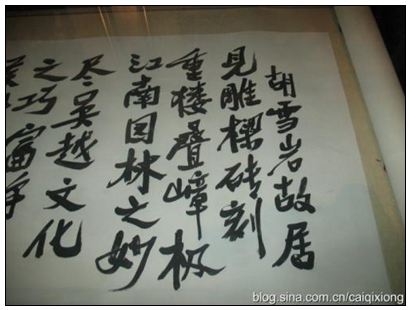 胡雪岩故居
見雕樑砖刻
重楼叠嶂极
江南园林之妙
尽吴越文化
之巧富
blog.sina.com.cn/caiqixiong